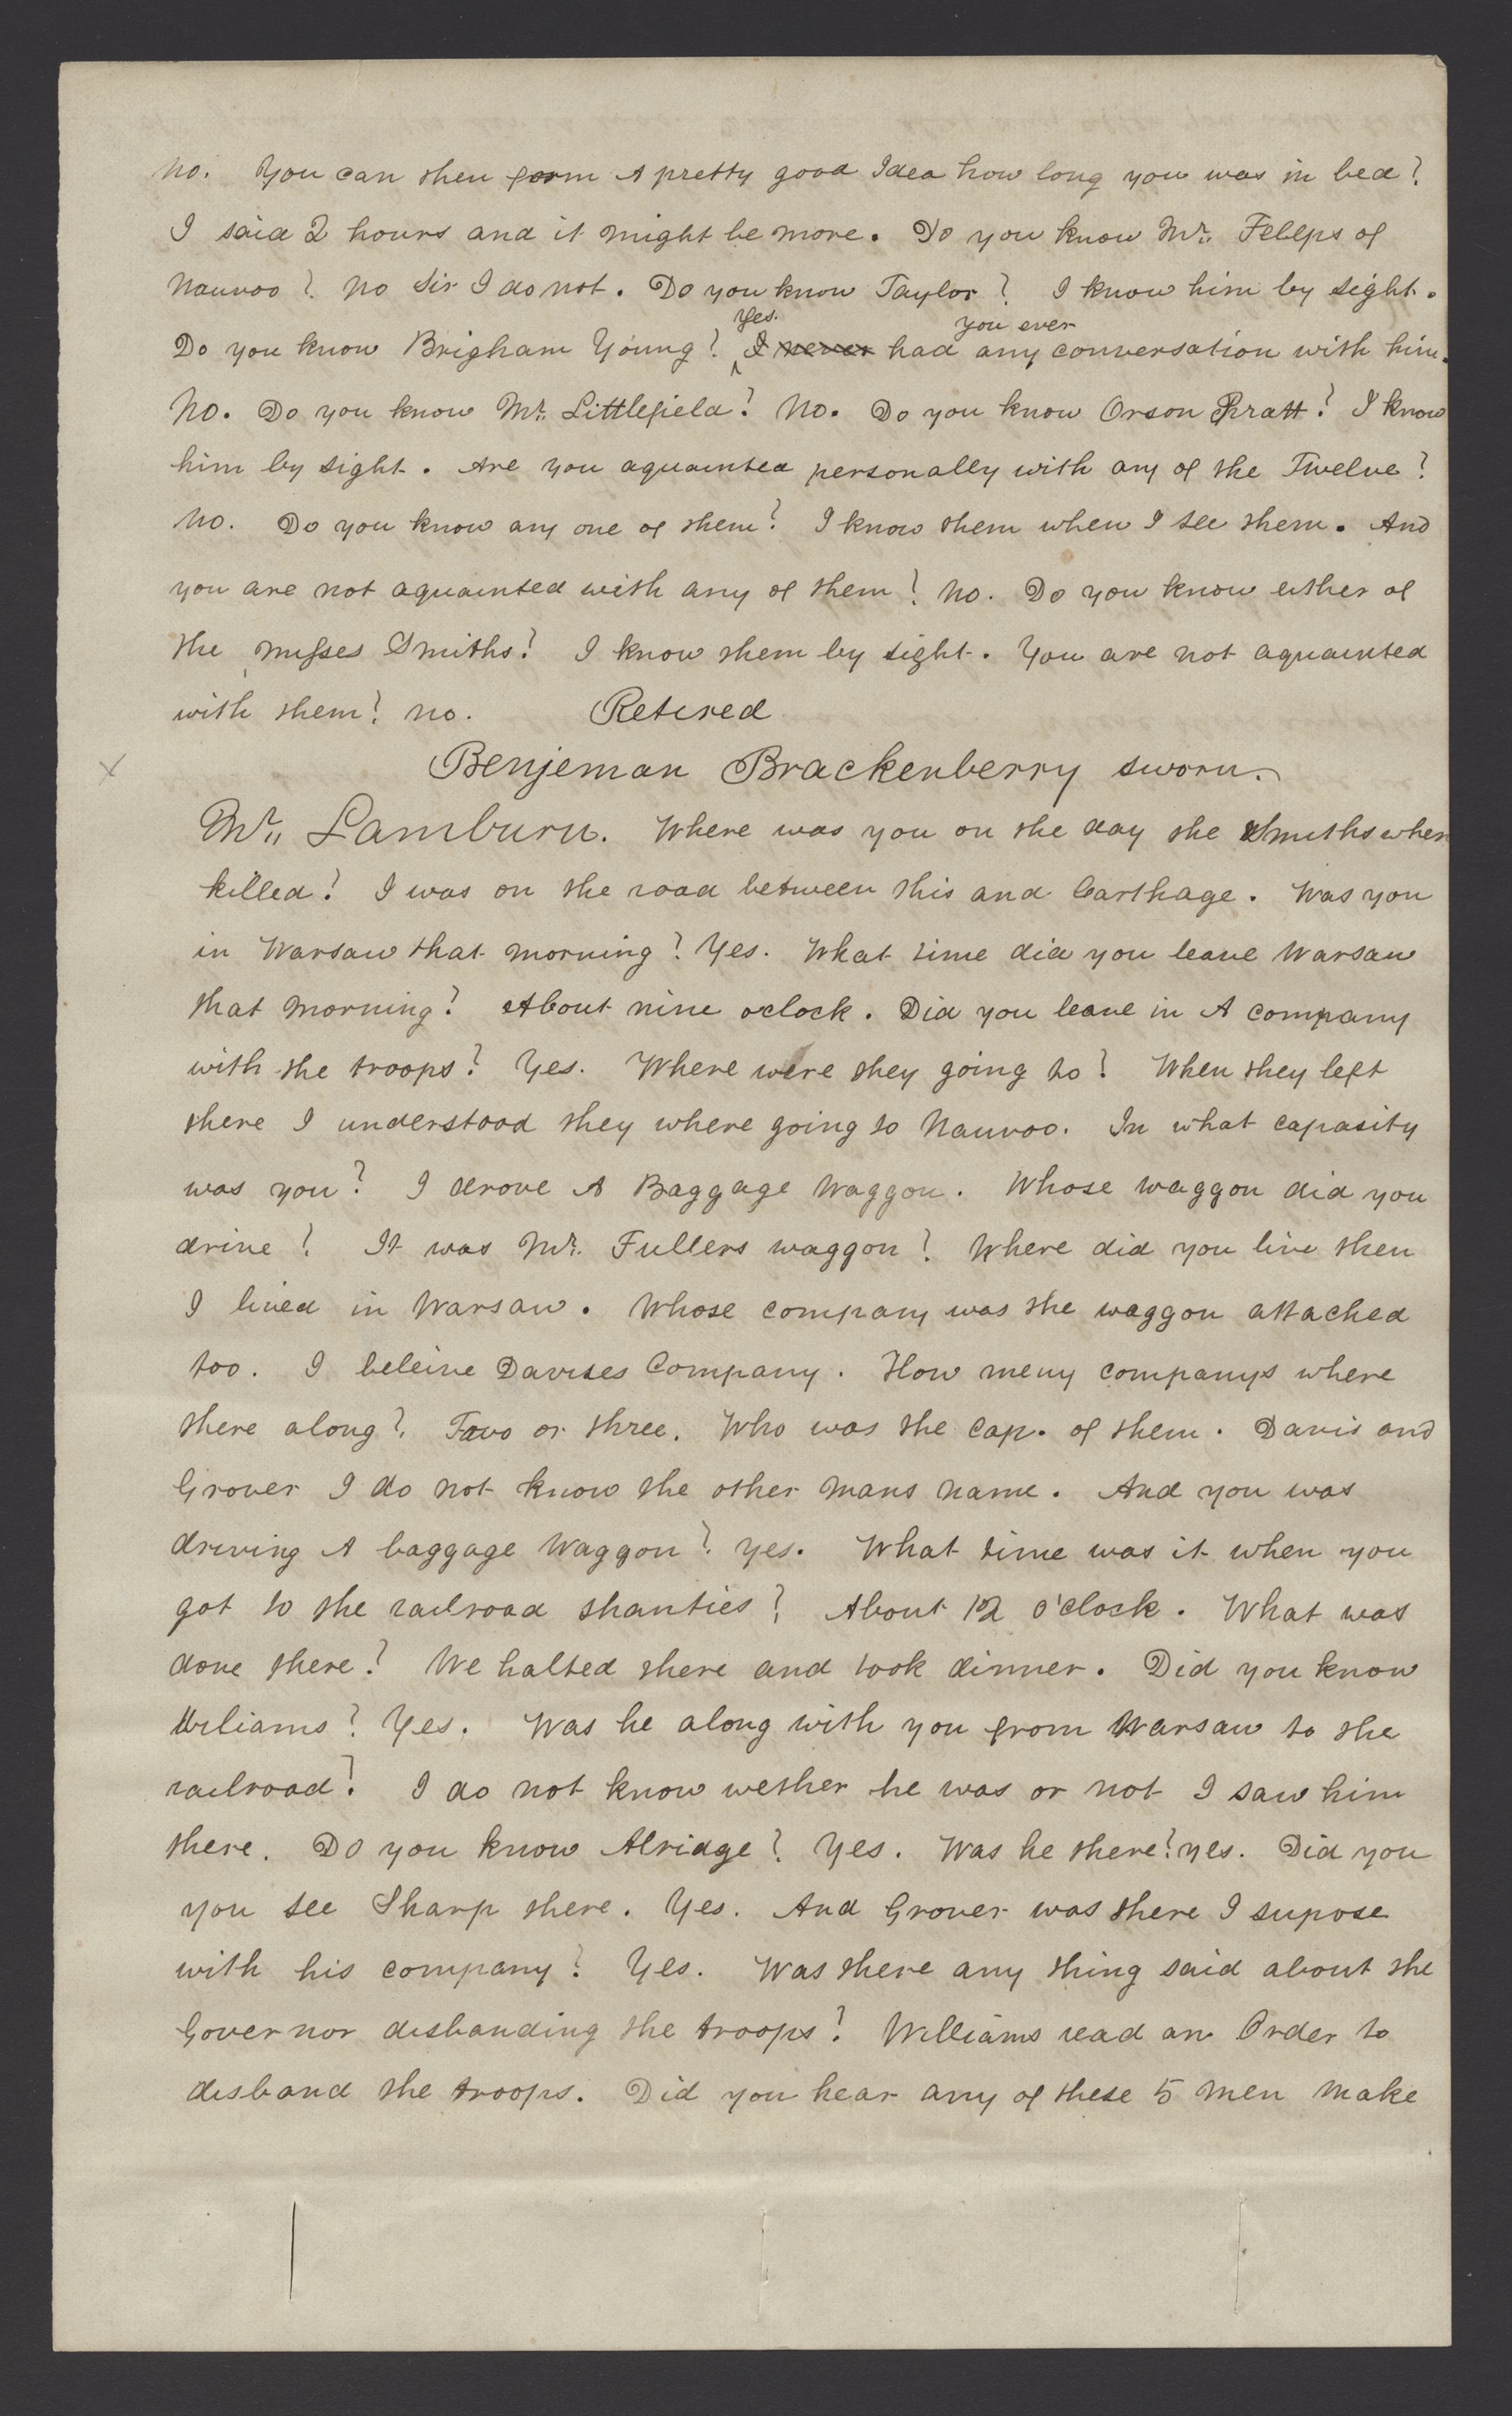 no. You can then form A pretty good Idea how long you was in bed?
I said 2 hours and it might be more. Do you know Mr. Felelps of
Nauvoo? No Sir I do not. Do you know Taylor? I know him by sight.
Yes. you ever
Do you know Brigham Young? I never had any conversation with him.
No. Do you know Mr. Littlefield? No. Do you know Orson Pratt? I know
him by sight. Are you aquainted personally with any of the Twelve?
No. Do you know any one of them? I know them when I see them. And
you are not aquainted with any of them? No. Do you know either of
the Misses Smiths? I know them by sight. You are not aquainted
with them? no. Retired
Benjeman Brackenberry sworn.
Mr. Lamburn. Where was you on the day the Smiths when
killed? I was on the road between this and Carthage. Was you
in Warsaw that morning? Yes. What time did you leave Warsaw
that morning? About nine oclock. Did you leave in A company
with the troops? Yes. Where were they going to? When they left
there I understood they where going to Nauvoo. In what capasity
was you? I drove A Baggage Waggon. Whose waggon did you
drive? It was Mr. Fullers waggon? Where did you live then
I lived in Warsaw. Whose company was the waggon attached
too. I beleive Davises Company. How meny companys where
there along? Two or three. Who was the Cap. of them. Davis and
Grover I do not know the other mans name. And you was
driving A baggage Waggon? yes. What time was it when you
got to the railroad shanties? About 12 o'clock. What was
done there? We halted there and took dinner. Did you know
Wiliams? Yes. Was he along with you from Warsaw to the
railroad? I do not know wether he was or not I saw him
there. Do you know Alridge? Yes. Was he there? yes. Did you
you see Sharp there. Yes. And Grover was there I supose
with his company? Yes. Was there any thing said about the
Governor disbanding the troops? Williams read an Order to
disband the troops. Did you hear any of these 5 men make